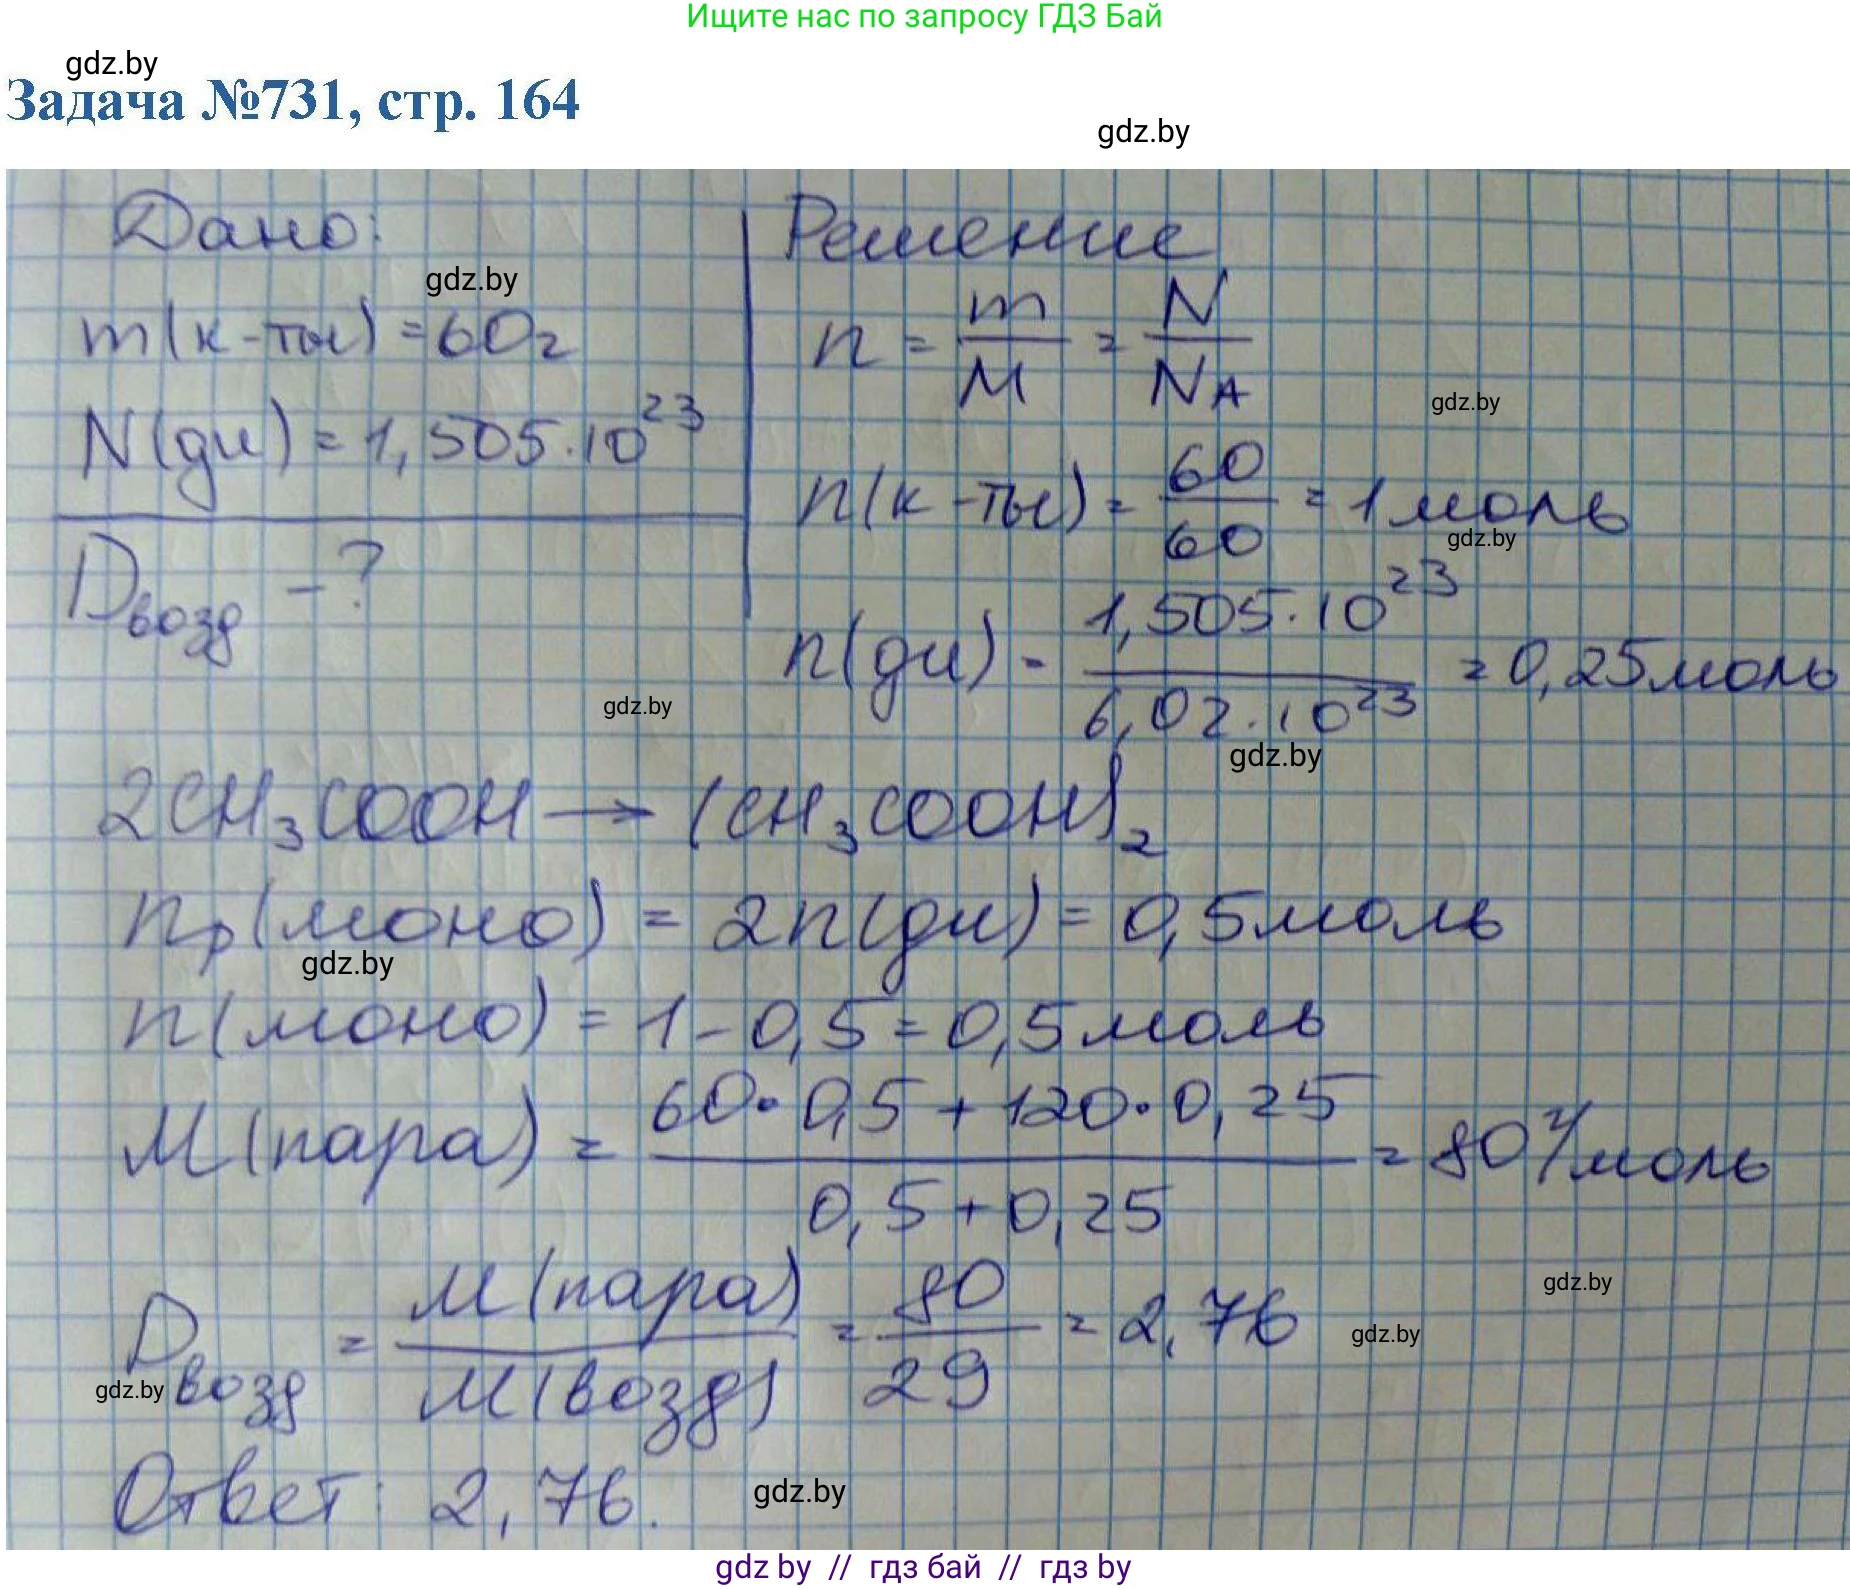 Ищите нас по запросу ГДЗ Бай
gdz.by
Задача №731, стр. 164
gdz.by
Дано:
gdz.by
m(к-ты) = 60г
N(ди) = 1,505·10²³
Dвозд - ?
Решение
n = m/M = N/NA
gdz.by
n(к-ты) = 60/60 = 1 моль
gdz.by
n(ди) = 1,505·10²³/6,02·10²³ = 0,25 моль
gdz.by
gdz.by
2CH₃COOH → (CH₃COOH)₂
nр(моно) = 2n(ди) = 0,5 моль
gdz.by
n(моно) = 1 - 0,5 = 0,5 моль
M(пара) = 60·0,5 + 120·0,25/0,5 + 0,25 = 80 г/моль
gdz.by
Dвозд = M(пара)/M(возд) = 80/29 = 2,76
gdz.by
gdz.by
Ответ: 2,76.
gdz.by
gdz by // гдз бай // гдз by